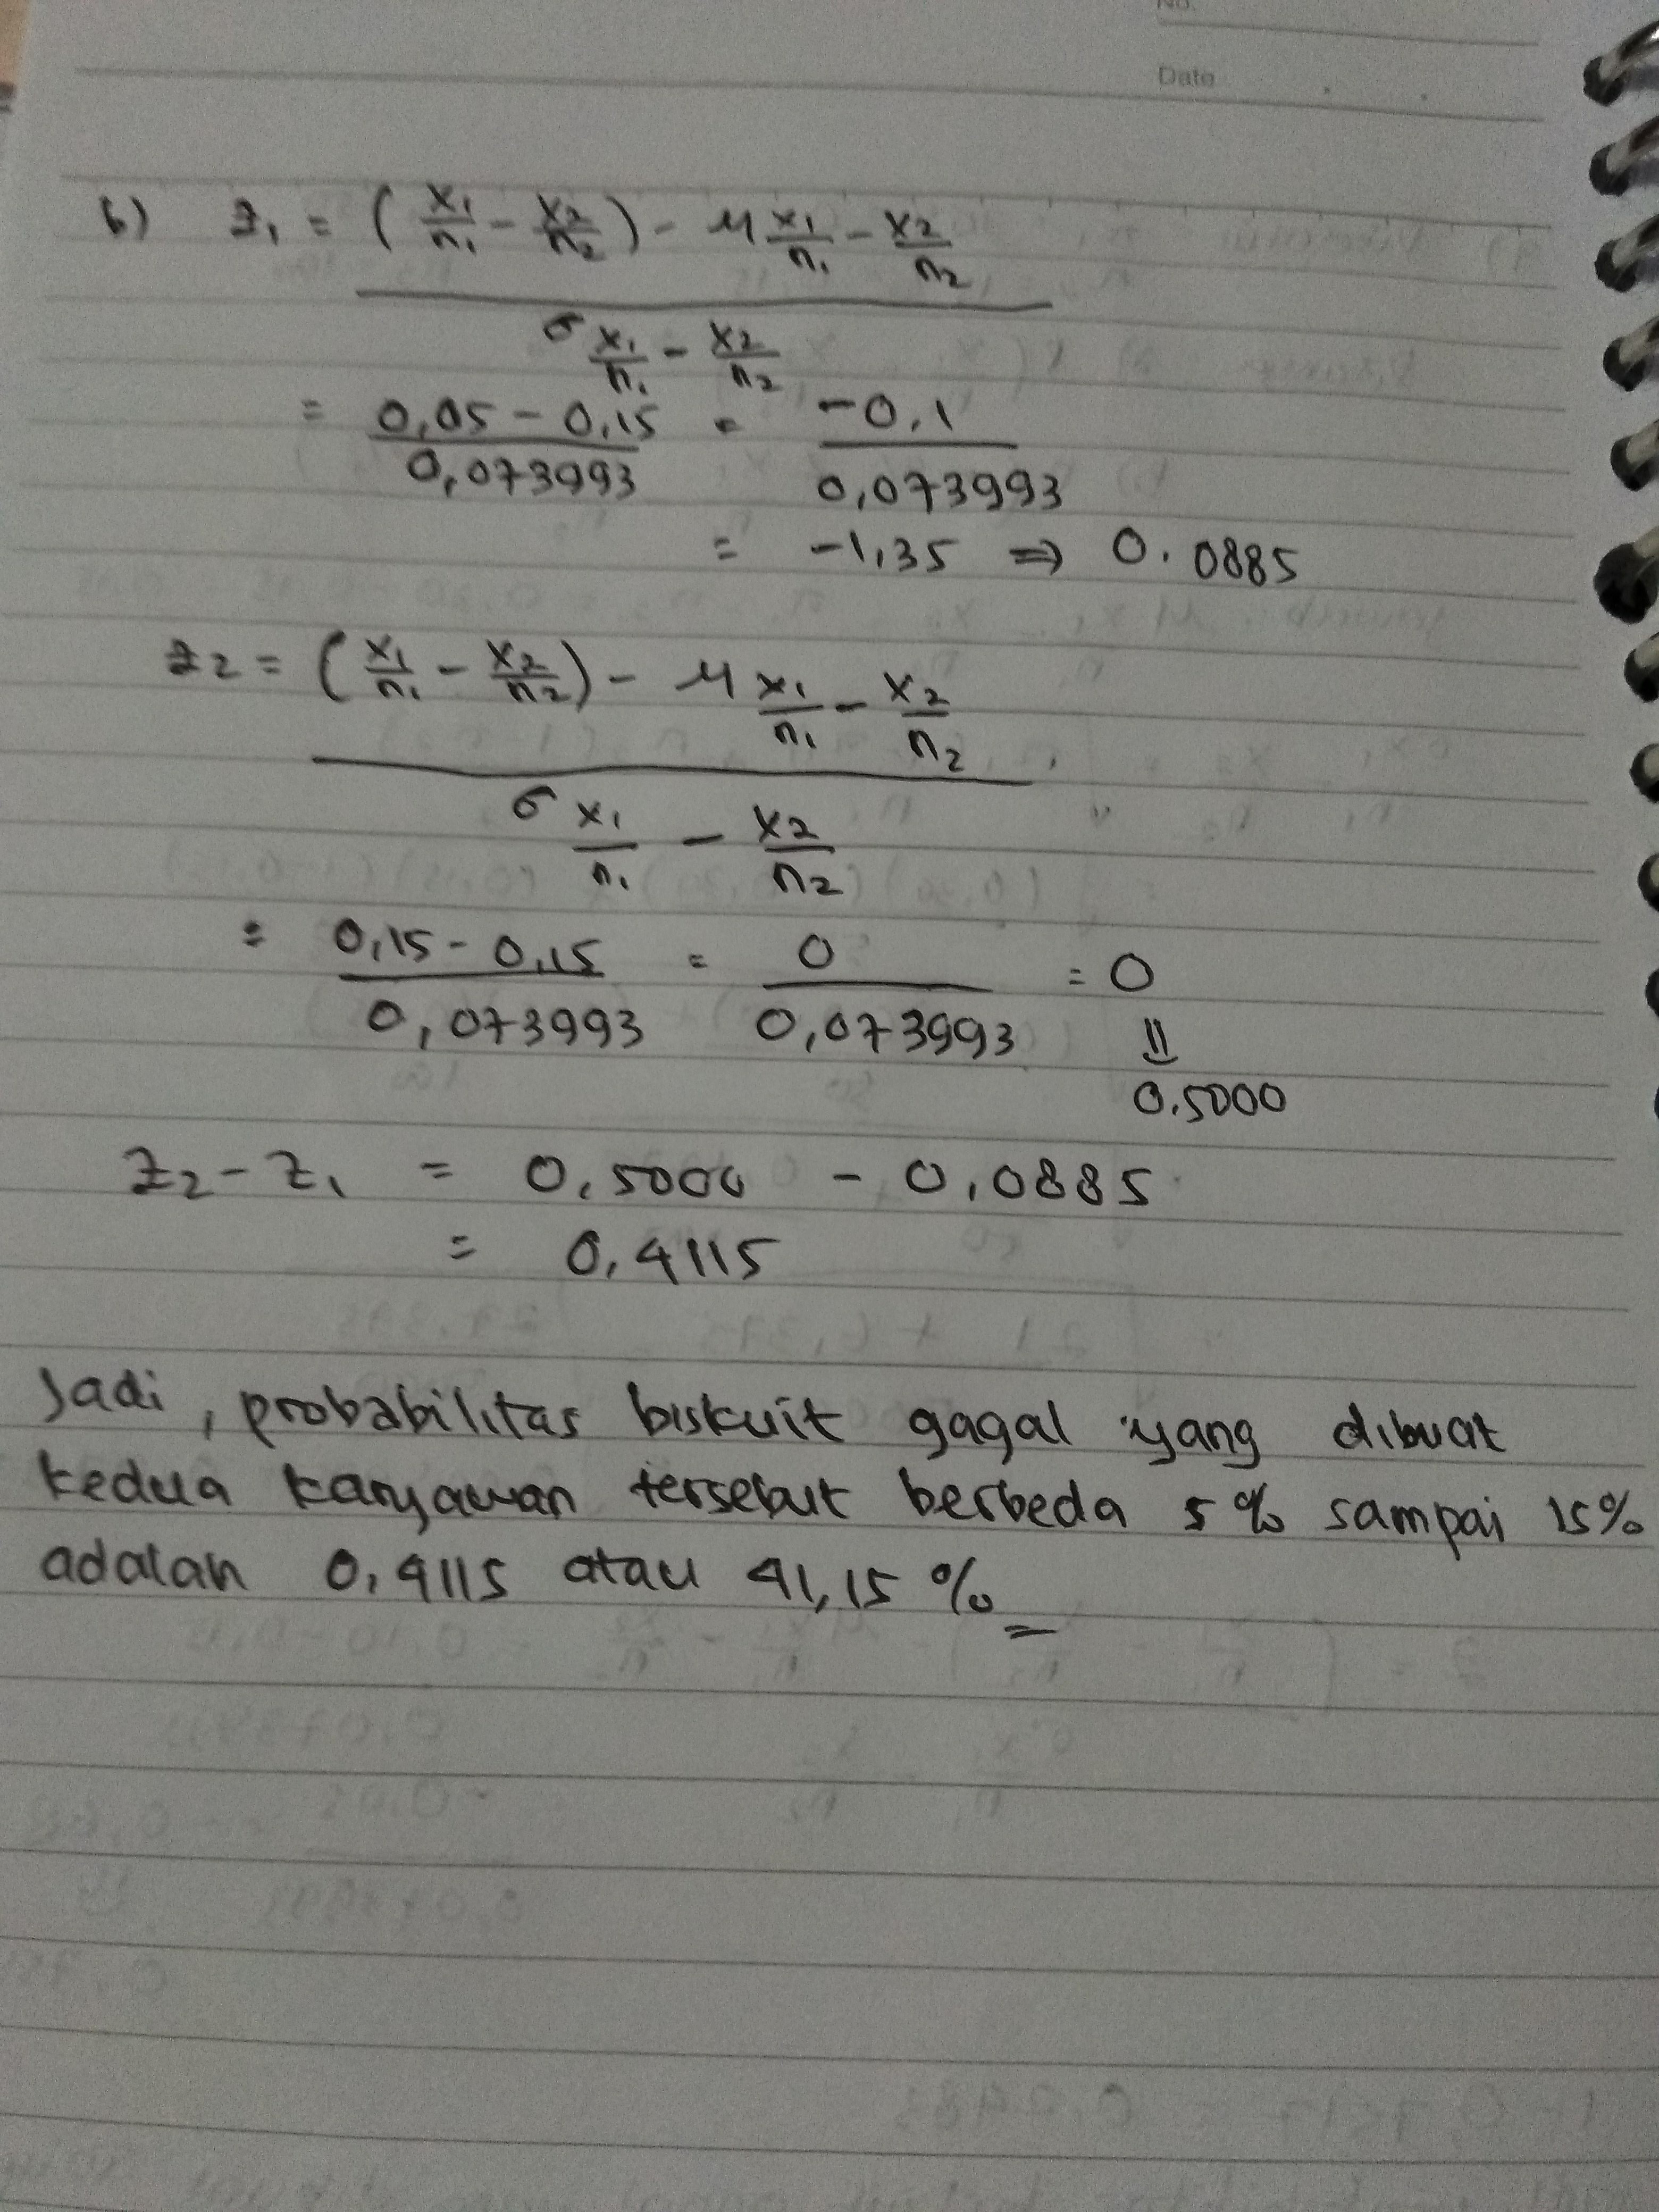 No.
Date
b) z₁ = (x₁/n₁ - x₂/n₂) - μ x₁/n₁ - x₂/n₂
σ x₁/n₁ - x₂/n₂
= 0,05 - 0,15 / 0,073993 = -0,1 / 0,073993
= -1,35 ⇒ 0.0885
z₂ = (x₁/n₁ - x₂/n₂) - μ x₁/n₁ - x₂/n₂
σ x₁/n₁ - x₂/n₂
= 0,15 - 0,15 / 0,073993 = 0 / 0,073993 = 0
⇓
0.5000
z₂ - z₁ = 0,5000 - 0,0885
= 0,4115
Jadi, probabilitas biskuit gagal yang dibuat
kedua karyawan tersebut berbeda 5% sampai 15%
adalah 0,4115 atau 41,15 %